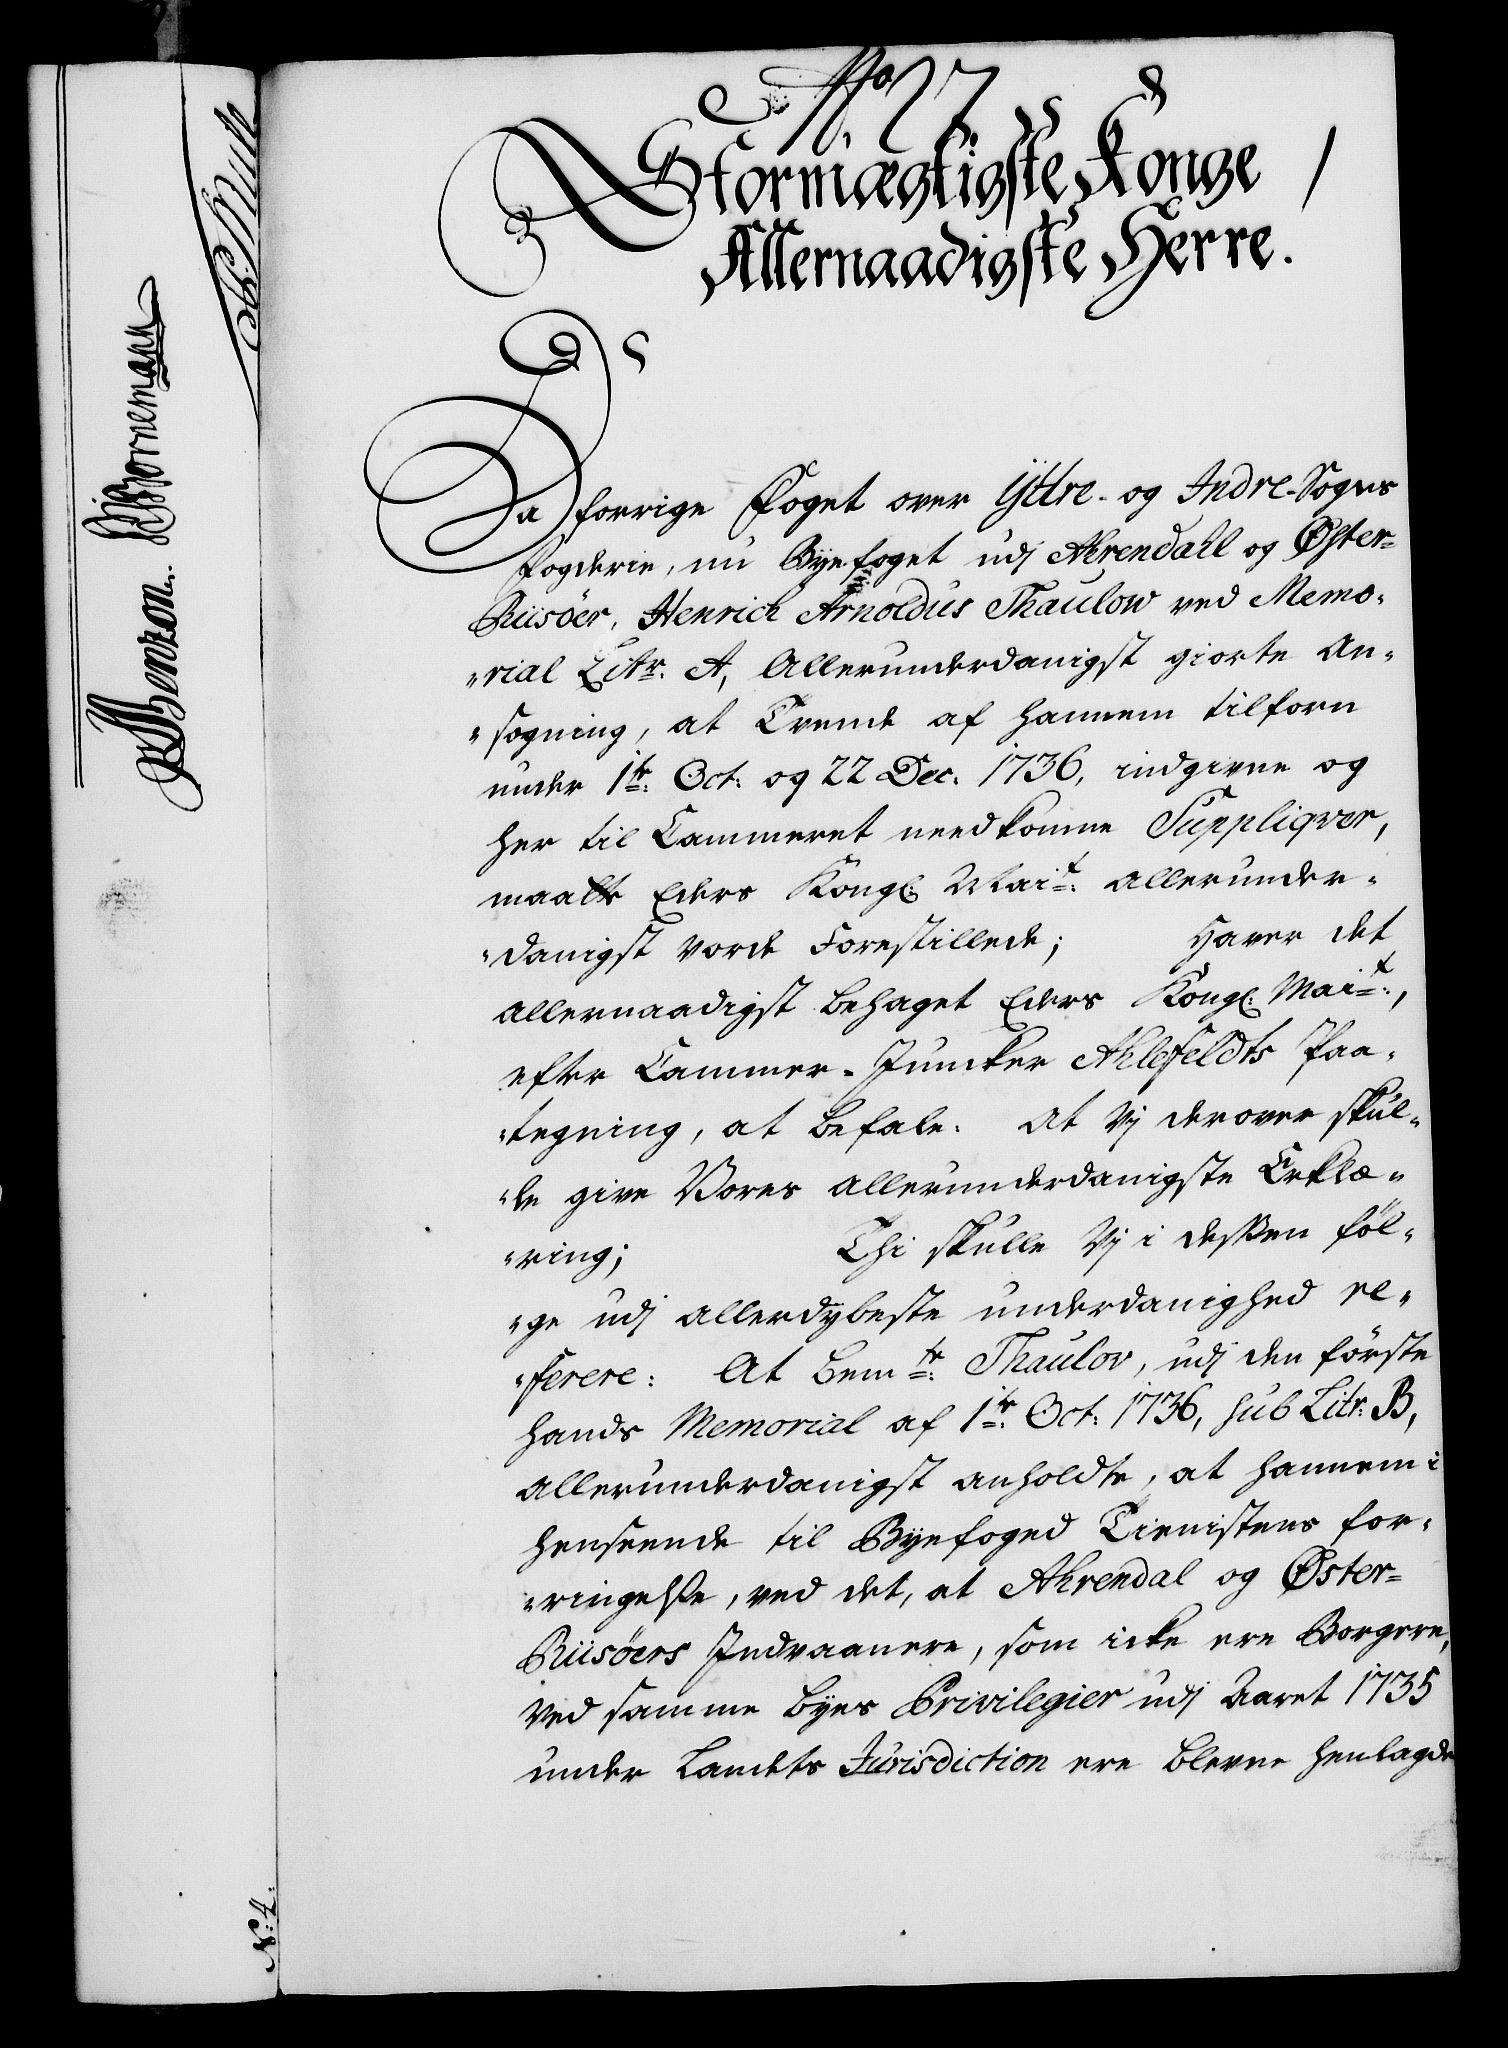 No 27.
Stormægtigste Konge
Allernaadigste Herre.
Da forrige Foget over Ÿttre- og Indre-Sogns
Fogderie, nu Byefoget udj Ahrendahl og Øster-
Riisöer, Henrich Arnoldus Thaulow ved Memo-
-rial Litr. A, Allerunderdanigst giorte An-
-sogning, at Tvende af hannem tilforn
under 1te Oct: og 22 Dec: 1736, indgivne og
her til Cammeret needkomne Suppliqver,
maatte Eders Kongl: Mait: allerunder-
-danigst vorde Forestillede; Haver det
allernaadigst behaget Eders Kongl: Mait:,
efter Cammer-Juncker Ahlefeldts Paa-
-tegning, at befale: At Vj derover skul-
-le give Vores allerunderdanigste Erklæ-
-ring; Thi skulle Vj i deßen föl-
-ge udj allerdybeste underdanighed re-
-ferere: At bemte Thaulov, udj den förste
hands Memorial af 1te Oct: 1736, sub Litr: B,
allerunderdanigst anholdte, at hannem i
henseende til Byefoged Tienistens for-
-ringelse, ved det, at Ahrendal og Øster-
Riisöers Indvaanere, som icke ere Borgere,
ved samme byes Privilegier udj Aaret 1735
under Landets Jurisdiction ere blevne henlagde
JBenzon. Bornemann
N: 4.